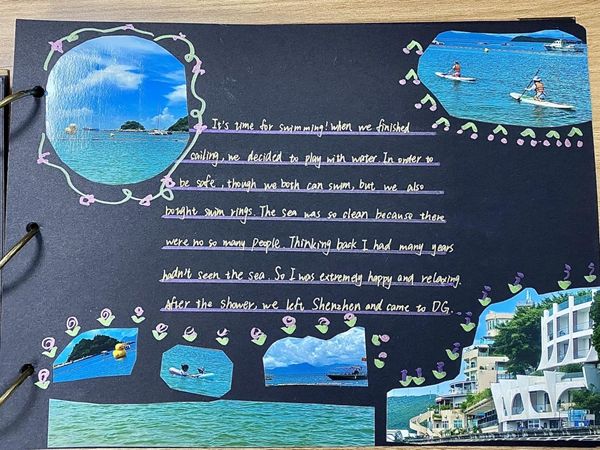 It's time for swimming! When we finished
cailing, we decided to play with water. In order to
be safe, though we both can swim, but we also
bought swim rings. The sea was so clean because there
were no so many people. Thinking back I had many years
hadn't seen the sea. So I was extremely happy and relaxing.
After the shower, we left Shenzhen and came to DG...